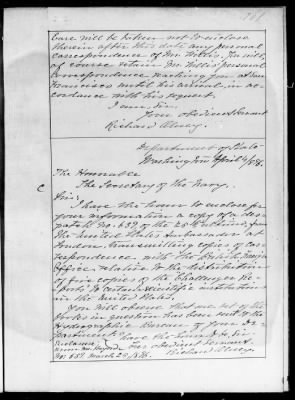 Care will be taken not to enclose
therein after this date any personal
correspondence of Mr. Willis. You will,
of course retain Mr. Willis' personal
correspondence reaching you at San
Francisco until his arrival in ac-
cordance with his request.
I am, Sir,
Your obedient servant
Richard Olney.
Department of State
Washington April 4/96.
The Honorable
The Secretary of the Navy.
Sir:
I have the honor to enclose for
your information a copy of a des-
patch No. 659, of the 25th ultimo, from
the United States Embassador at
London, transmitting copies of cor-
respondence with the British Foreign
Office relative to the distribution
of five copies of the Challenger Re-
ports to certain scientific institutions
in the United States.
You will observe that one set of the
books in question has been sent to the
Hydrographic Bureau of your De-
partment.
I have the honor to be, Sir,
Your obedient servant,
Richard Olney.
Enclosure:
From Mr. Bayard
No. 659 March 25